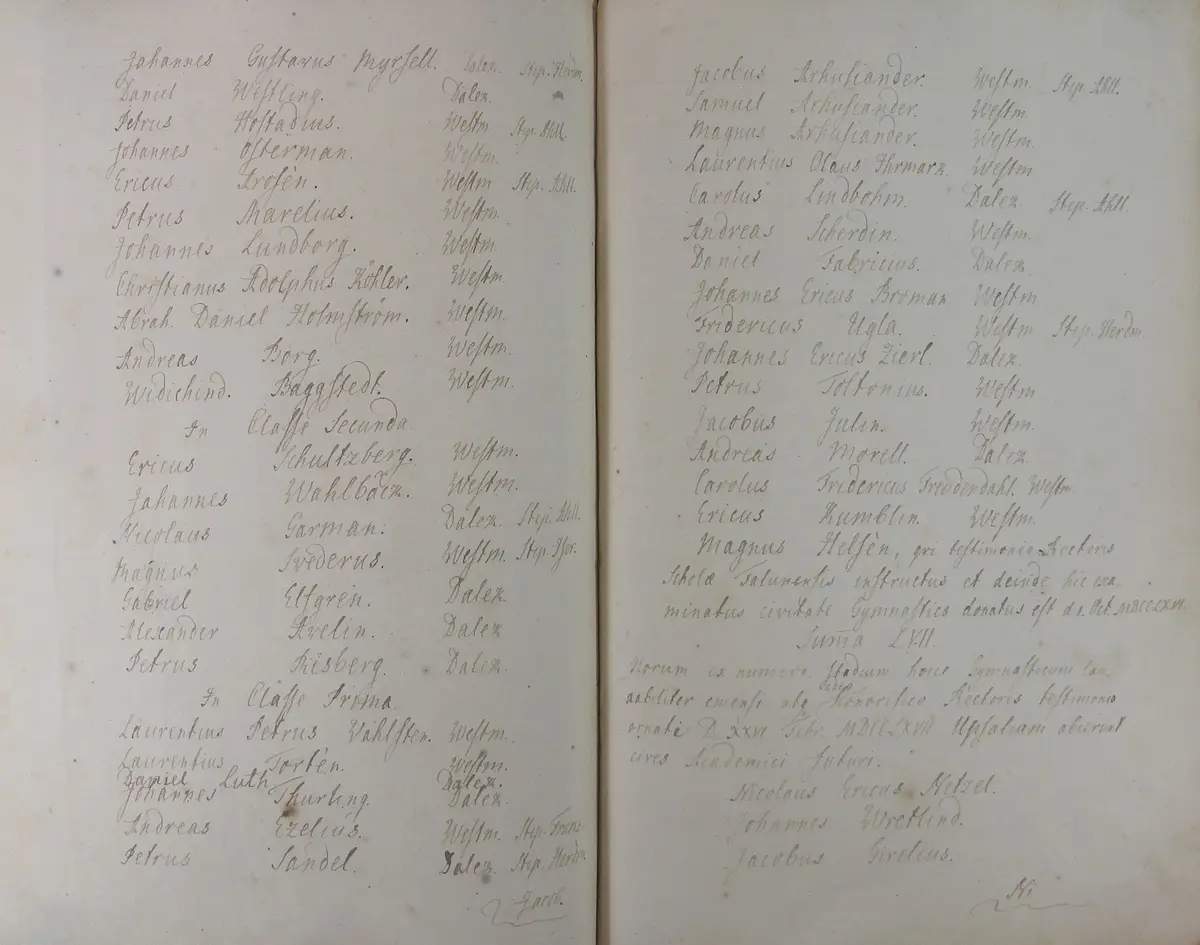 Johannes Gustavus Myrsell. Dalek. Stip. Herdm.
Daniel Westling. Dalek.
Petrus Hostadius. Westm. Stip. Ahll.
Johannes Osterman. Westm.
Ericus Frosèn. Westm Stip. Ahll.
Petrus Marelius. Westm.
Johannes Lundborg. Westm.
Christianus Adolphus Köhler. Westm.
Abrah. Daniel Holmström. Westm.
Andreas Borg. Westm.
Widichind. Baggstedt. Westm.
In Classe Secunda
Ericus Schultzberg. Westm.
Johannes Wahlböck. Westm.
Nicolaus Garman. Dalek. Stip. Ahll.
Magnus Svederus. Westm. Stip.
Gabriel Elfgren. Dalek
Alexander Avelin. Dalek
Petrus Risberg. Dalek
In Classe Prima
Laurentius Petrus Vahlsten. Westm.
Laurentius Tortèn. Westm.
Daniel Luth Dalek.
Johannes Thurling. Dalek
Andreas Ezelius. Westm. Stip.
Petrus Sandel. Dalek. Stip. Herdm.
Jacob.
Jacobus Arhusiander. Westm. Stip. Ahll.
Samuel Arhusiander. Westm.
Magnus Arhusiander. Westm.
Laurentius Olaus Westm
Carolus Lindbohm. Dalek Stip. Ahll.
Andreas Scherdin. Westm.
Daniel Fabricius. Dalek
Johannes Ericus Broman Westm
Fridericus Ugla. Westm Stip. Herdm.
Johannes Ericus Zierl. Dalek.
Petrus Toltonius. Westm
Jacobus Julin. Westm.
Andreas Morell. Dalek
Carolus Fridericus Freudendahl. Westm.
Ericus Humblin. Westm.
Magnus Helsèn, qvi testimonio Rectoris
Scholæ Falunensis instructus et deinde hic exa-
minatus civitate Gymnastica donatus est d 1. Oct. MDCCLXVI.
Suma LVII
Horum ex numero, stadium hocce Gymnasticum lau-
dabiliter emensi atque Honorifico Rectoris testimonio
ornati D. XXVI Febr. MDCCLXVII Upsaliam abierunt
cives Academici futuri.
Nicolaus Ericus Netzel.
Johannes Wretlind.
Jacobus Girelius.
Ni